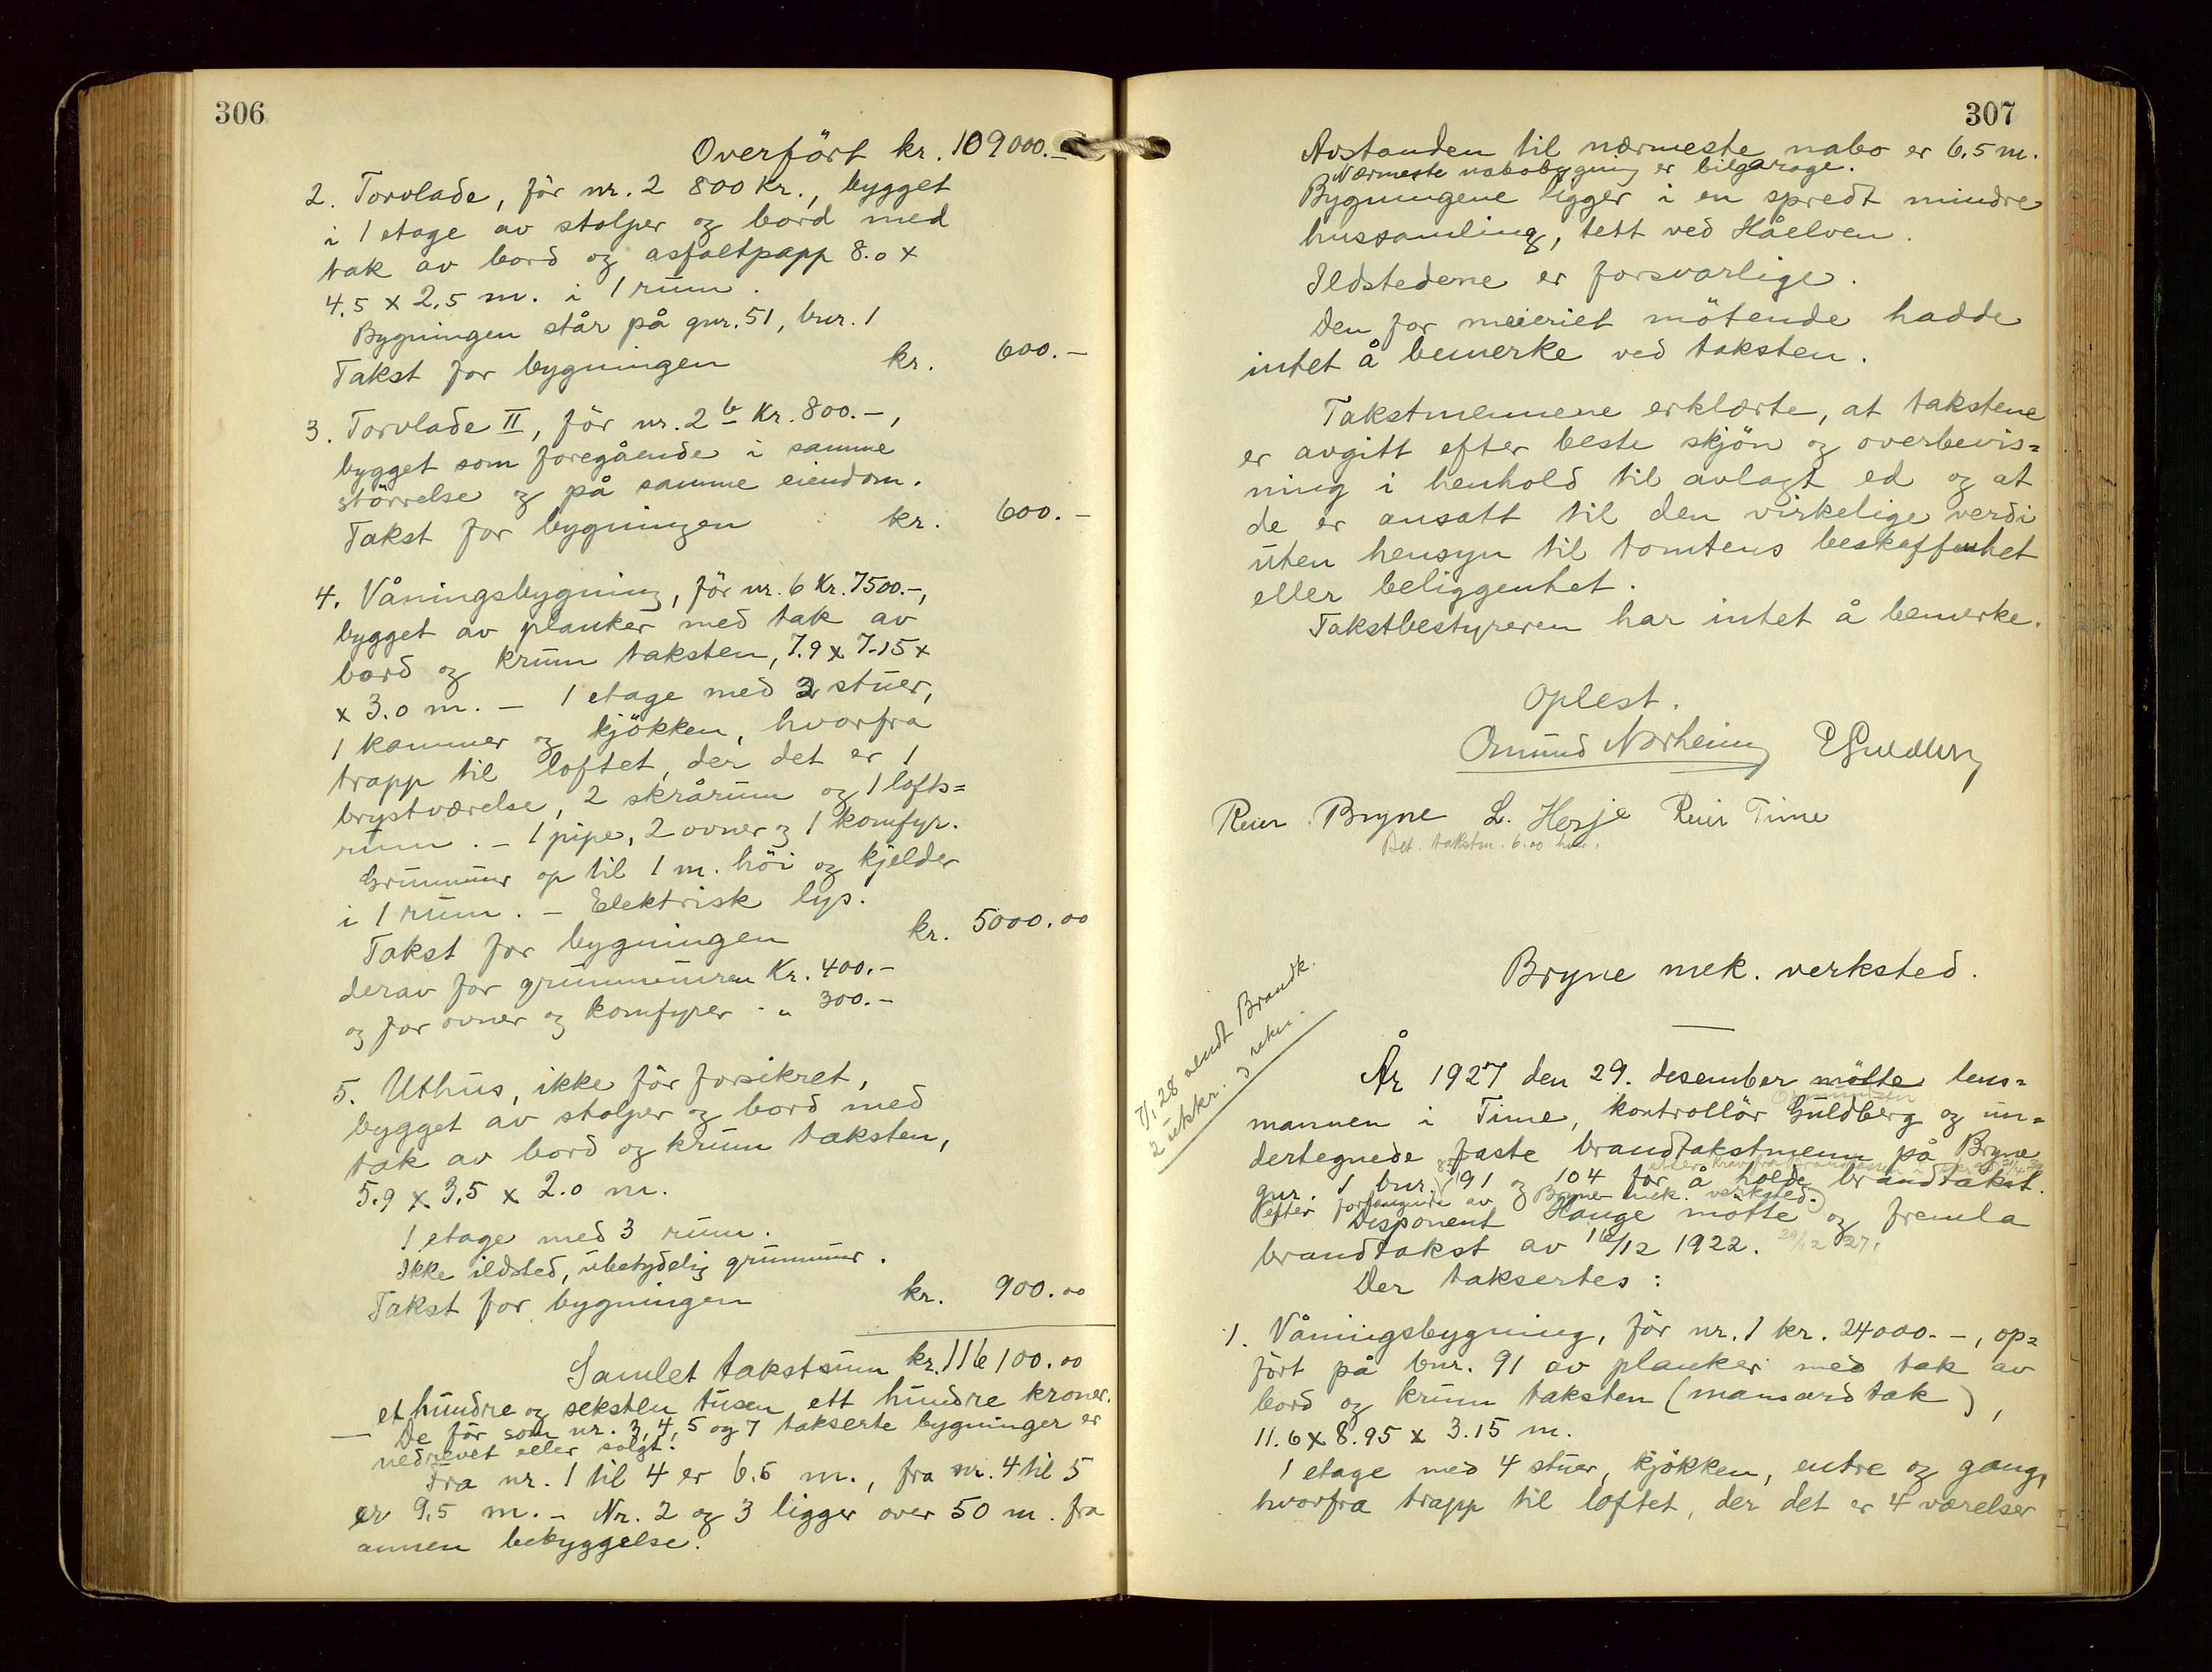 306
Overført kr. 109000.–
2. Torvlade, før nr. 2 800 kr., bygget
i 1 etage av stolper og bord med
tak av bord og asfaltpapp 8.0 x
4.5 x 2.5 m. i 1 rum.
Bygningen står på gnr. 51, bnr. 1
Takst for bygningen kr. 600.–
3. Torvlade II, før nr. 2 b Kr. 800.–,
bygget som foregående i samme
størrelse og på samme eiendom.
Takst for bygningen kr. 600.–
4. Våningsbygning, før nr. 6 Kr. 7500.–,
bygget av planker med tak av
bord og krum taksten, 7.9 x 7.15 x
x 3.0 m. – 1 etage med 2 stuer,
1 kammer og kjøkken, hvorfra
trapp til loftet, der det er 1
brystværelse, 2 skrårum og 1 lofts=
rum. – 1 pipe, 2 ovner og 1 komfyr.
Grunnmur op til 1 m. høi og kjelder
i 1 rum. – Elektrisk lys.
Takst for bygningen kr. 5000.00
derav for grunnmuren Kr. 400.–
og for ovner og komfyrer " 300.–
5. Uthus, ikke før forsikret,
bygget av stolper og bord med
tak av bord og krum taksten,
5.9 x 3.5 x 2.0 m.
1 etage med 3 rum.
Ikke ildsted, ubetydelig grunnmur.
Takst for bygningen kr. 900.00
Samlet takstsum kr. 116100.00
et hundre og seksten tusen ett hundre kroner.
– De før som nr. 3, 4, 5 og 7 takserte bygninger er
nedrevet eller solgt.
Fra nr. 1 til 4 er 6.5 m., fra nr. 4 til 5
er 9.5 m. – Nr. 2 og 3 ligger over 50 m. fra
annen bebyggelse.
307
Avstanden til nærmeste nabo er 6.5 m.
Nærmeste nabobygning er bilgarage.
Bygningene ligger i en spredt mindre
hussamling, tett ved Håelven.
Ildstedene er forsvarlige.
Den for meieriet møtende hadde
intet å bemerke ved taksten.
Takstmennene erklærte, at takstene
er avgitt efter beste skjøn og overbevis=
ning i henhold til avlagt ed og at
de er ansatt til den virkelige verdi
uten hensyn til tomtens beskaffenhet
eller beliggenhet.
Takstbestyreren har intet å bemerke.
Oplest.
Osmund Norheim
Reier Bryne L. Herje Reier Time
Bet. takstm. 6.00 hver.
Bryne mek. verksted.
7/1 28 sendt Brandk.
2 utskr.
År 1927 den 29. desember møtte lens=
mannen i Time, kontrollør Guldberg og un=
dertegnede faste brandtakstmenn på Bryne
gnr. 1 bnr. 91 og 104 for å holde brandtakst.
(efter forlangende av Bryne mek. verksted.)
Disponent Hauge møtte og fremla
brandtakst av 16/12 1922. 29/12 27.
Der taksertes:
1. Våningsbygning, før nr. 1 kr. 24000.–, op=
ført på bnr. 91 av planker med tak av
bord og krum taksten (mansardtak),
11.6 x 8.95 x 3.15 m.
1 etage med 4 stuer, kjøkken, entre og gang,
hvorfra trapp til loftet, der det er 4 værelser